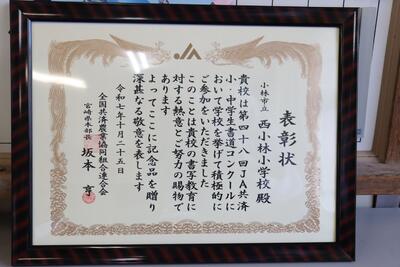 JA
表彰状
小林市立 西小林小学校殿
貴校は第四十八回JA共済
小・中学生書道コンクールに
おいて学校を挙げて積極的に
ご参加をいただきました
このことは貴校の書写教育に
対する熱意とご努力の賜物で
あります
よってここに記念品を贈り
深甚なる敬意を表します
令和七年十月二十五日
全国共済農業協同組合連合会
宮崎県本部長 坂本 亨